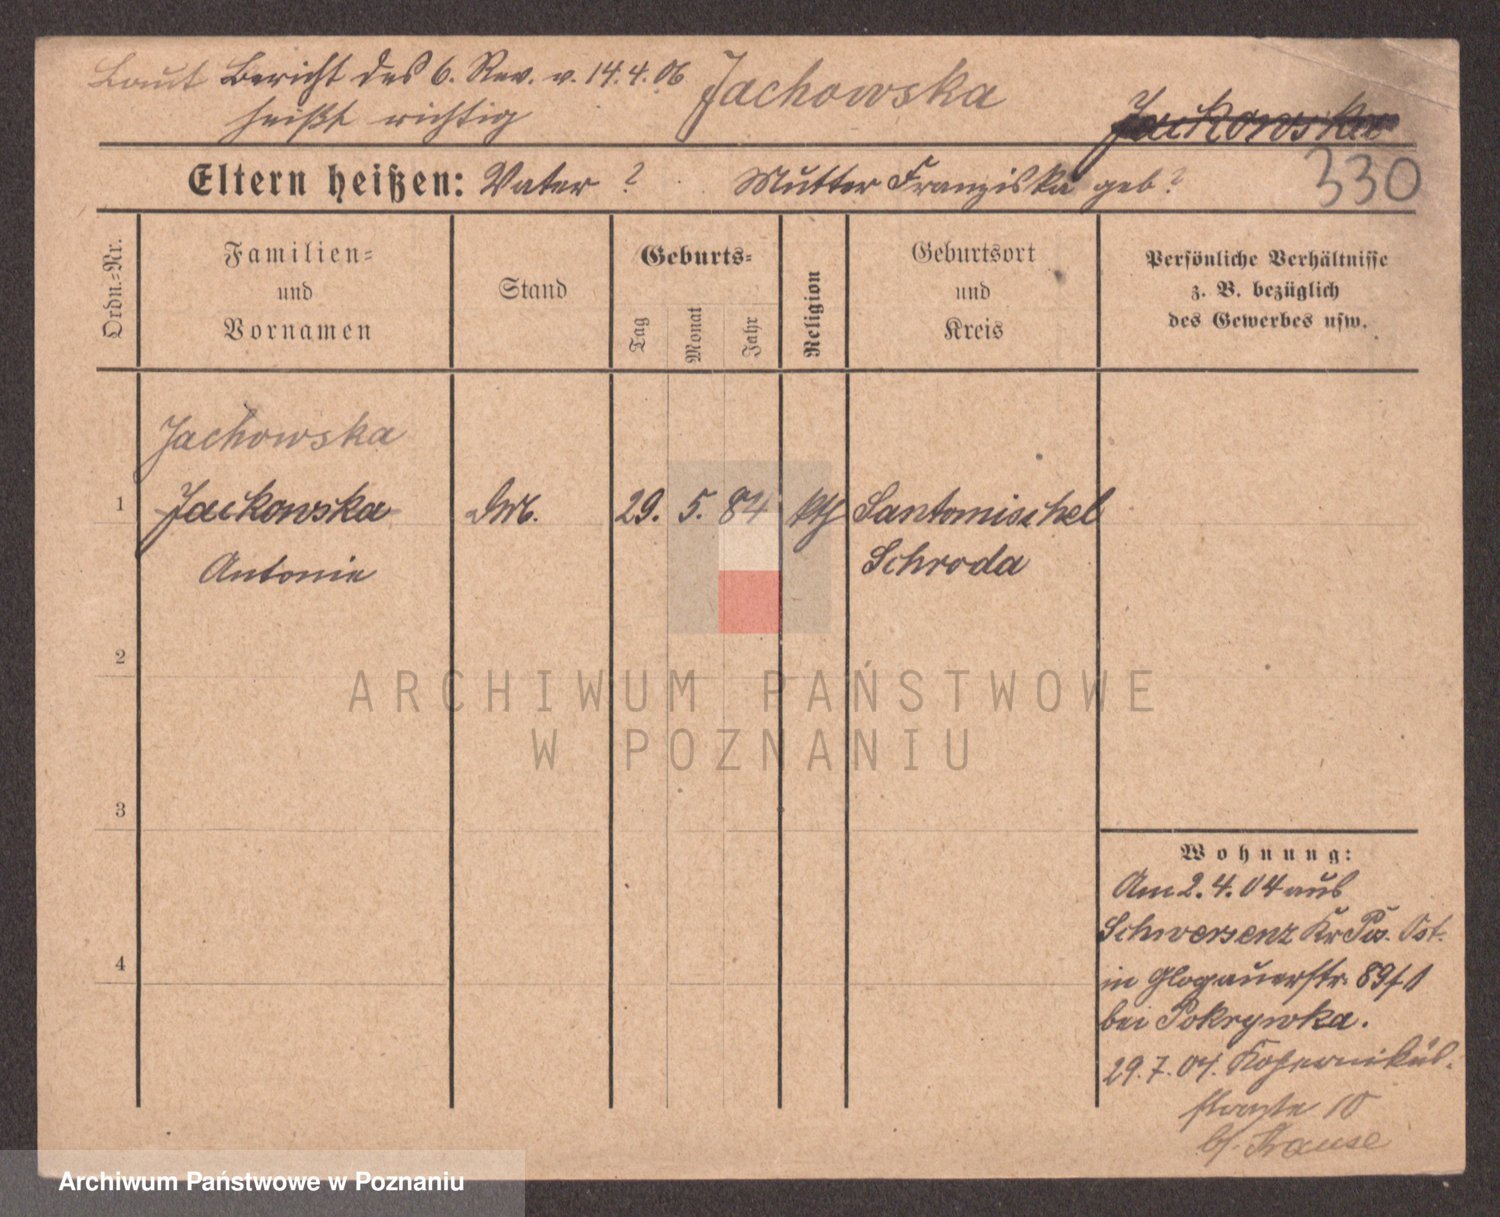 Laut Bericht des 6. Rev. v. 14.4.06 Jachowska
heißt richtig
Jackowska
330
Eltern heißen: Vater ? Mutter Franziska geb ?
Ordn.-Nr.
Familien-
und
Vornamen
Stand
Geburts-
Tag
Monat
Jahr
Religion
Geburtsort
und
Kreis
Persönliche Verhältnisse
z. B. bezüglich
des Gewerbes usw.
Jachowska
1 Jackowska 29. 5. 84 kth Santomischel
Antonie Schroda
2
3
4
Wohnung:
Am 2.4.04 aus
Schwersenz Kr Pos. Ost.
in Glogauerstr. 89/I
bei Pokrywka.
29.7.04. Kopernikus-
straße 10
b/ Krause
ARCHIWUM PAŃSTWOWE
W POZNANIU
Archiwum Państwowe w Poznaniu